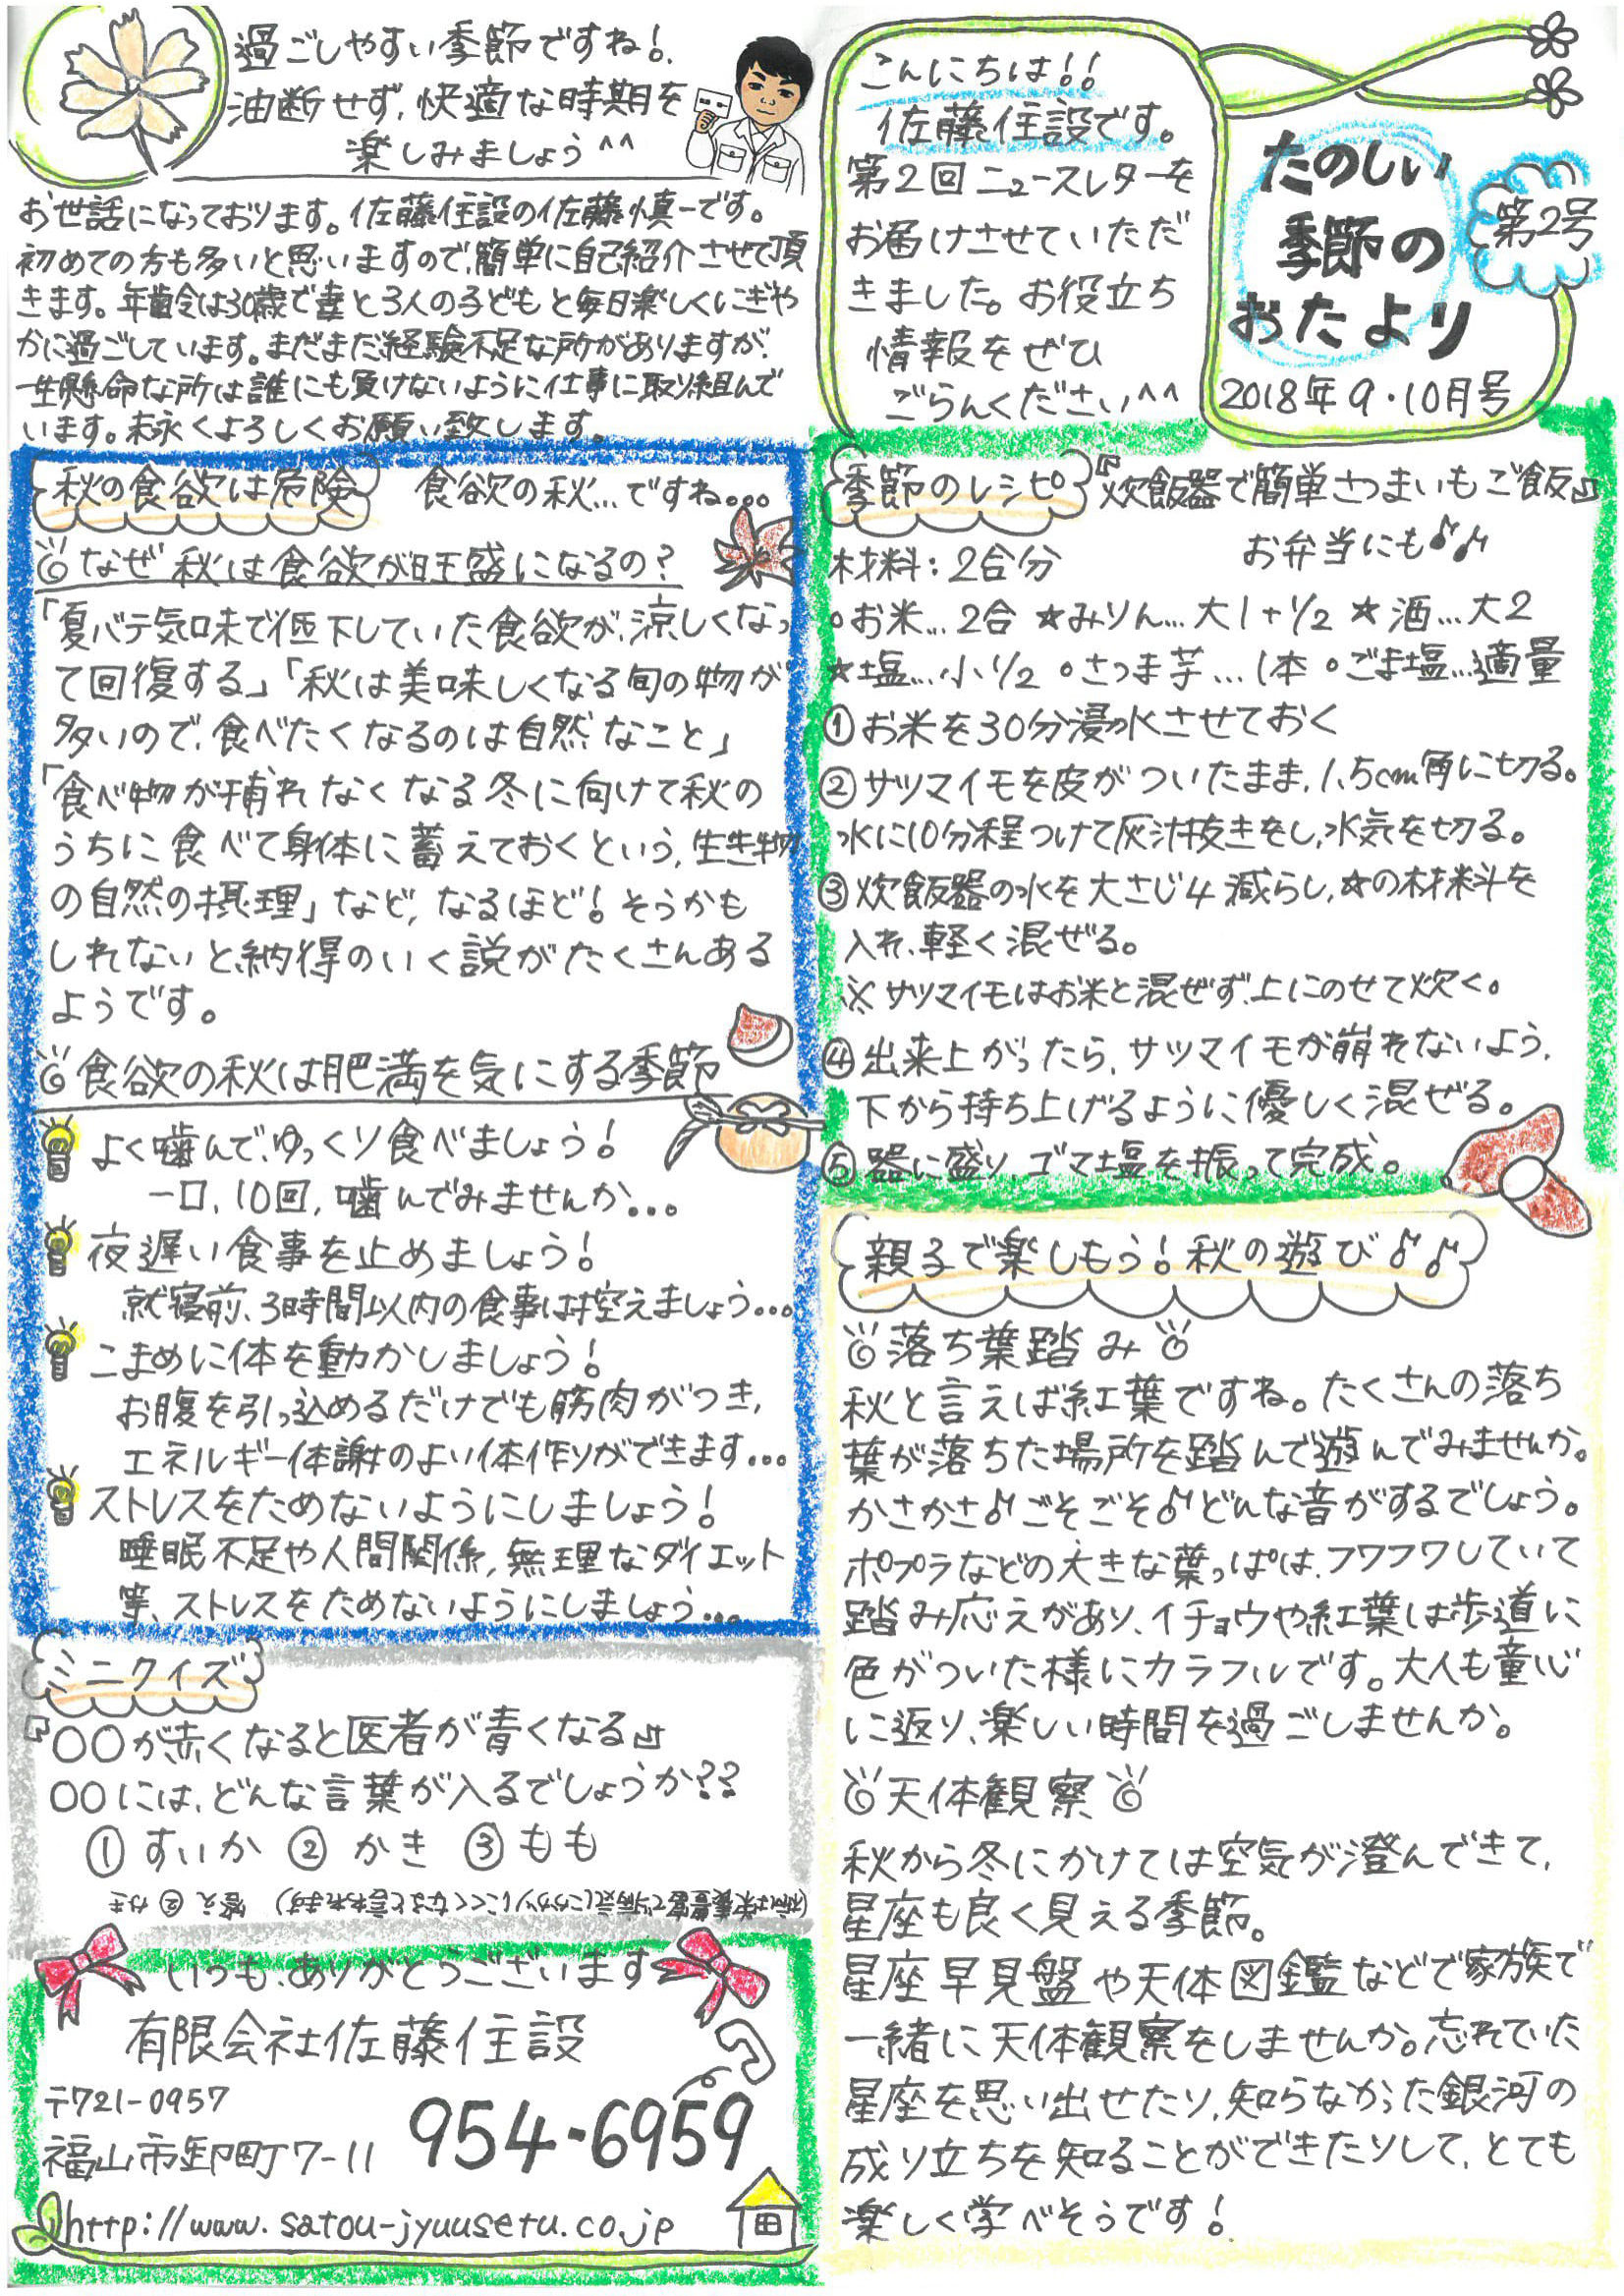 過ごしやすい季節ですね!、
油断せず、快適な時期を
楽しみましょう^^
お世話になっております。佐藤住設の佐藤慎一です。
初めての方も多いと思いますので、簡単に自己紹介させて頂
きます。年齢は30歳で妻と3人の子どもと毎日楽しくにぎや
かに過ごしています。まだまだ経験不足な所がありますが、
一生懸命な所は誰にも負けないように仕事に取り組んで
います。末永くよろしくお願い致します。
こんにちは!!
佐藤住設です。
第2回ニュースレターを
お届けさせていただ
きました。お役立ち
情報をぜひ
ごらんください^^
たのしい
季節の
おたより
第2号
2018年9・10月号
秋の食欲は危険 食欲の秋...ですね...
なぜ秋は食欲が旺盛になるの?
「夏バテ気味で低下していた食欲が、涼しくなっ
て回復する」「秋は美味しくなる旬の物が
多いので、食べたくなるのは自然なこと」
「食べ物が捕れなくなる冬に向けて秋の
うちに食べて身体に蓄えておくという、生き物
の自然の摂理」など、なるほど!そうかも
しれないと納得のいく説がたくさんある
ようです。
食欲の秋は肥満を気にする季節
よく噛んで、ゆっくり食べましょう!
一口、10回、噛んでみませんか...
夜遅い食事を止めましょう!
就寝前、3時間以内の食事は控えましょう...
こまめに体を動かしましょう!
お腹を引っ込めるだけでも筋肉がつき、
エネルギー体謝のよい体作りができます...
ストレスをためないようにしましょう!
睡眠不足や人間関係、無理なダイエット
等、ストレスをためないようにしましょう...
ミニクイズ
『○○が赤くなると医者が青くなる』
○○には、どんな言葉が入るでしょうか??
① すいか ② かき ③ もも
答え ② かき (柿は栄養豊富で病気にかかりにくくなると言われます)
いつも、ありがとうございます
有限会社佐藤住設
〒721-0957
福山市卸町7-11
954-6959
http://www.satou-jyuusetu.co.jp
季節のレシピ 『炊飯器で簡単さつまいもご飯』
お弁当にも♪♪
材料:2合分
○お米...2合 ★みりん...大1+1/2 ★酒...大2
★塩...小1/2 ○さつま芋...1本 ○ごま塩...適量
①お米を30分浸水させておく
②サツマイモを皮がついたまま、1.5cm角に切る。
水に10分程つけて灰汁抜きをし、水気を切る。
③炊飯器の水を大さじ4減らし、☆の材料を
入れ、軽く混ぜる。
※サツマイモはお米と混ぜず、上にのせて炊く。
④出来上がったら、サツマイモが崩れないよう、
下から持ち上げるように優しく混ぜる。
⑤器に盛り、ゴマ塩を振って完成。
親子で楽しもう!秋の遊び♪♪
落ち葉踏み
秋と言えば紅葉ですね。たくさんの落ち
葉が落ちた場所を踏んで遊んでみませんか。
かさかさ♪ごそごそ♪どんな音がするでしょう。
ポプラなどの大きな葉っぱは、フワフワしていて
踏み応えがあり、イチョウや紅葉は歩道に
色がついた様にカラフルです。大人も童心
に返り、楽しい時間を過ごしませんか。
天体観察
秋から冬にかけては空気が澄んできて、
星座も良く見える季節。
星座早見盤や天体図鑑などで家族で
一緒に天体観察をしませんか。忘れていた
星座を思い出せたり、知らなかった銀河の
成り立ちを知ることができたりして、とても
楽しく学べそうです!